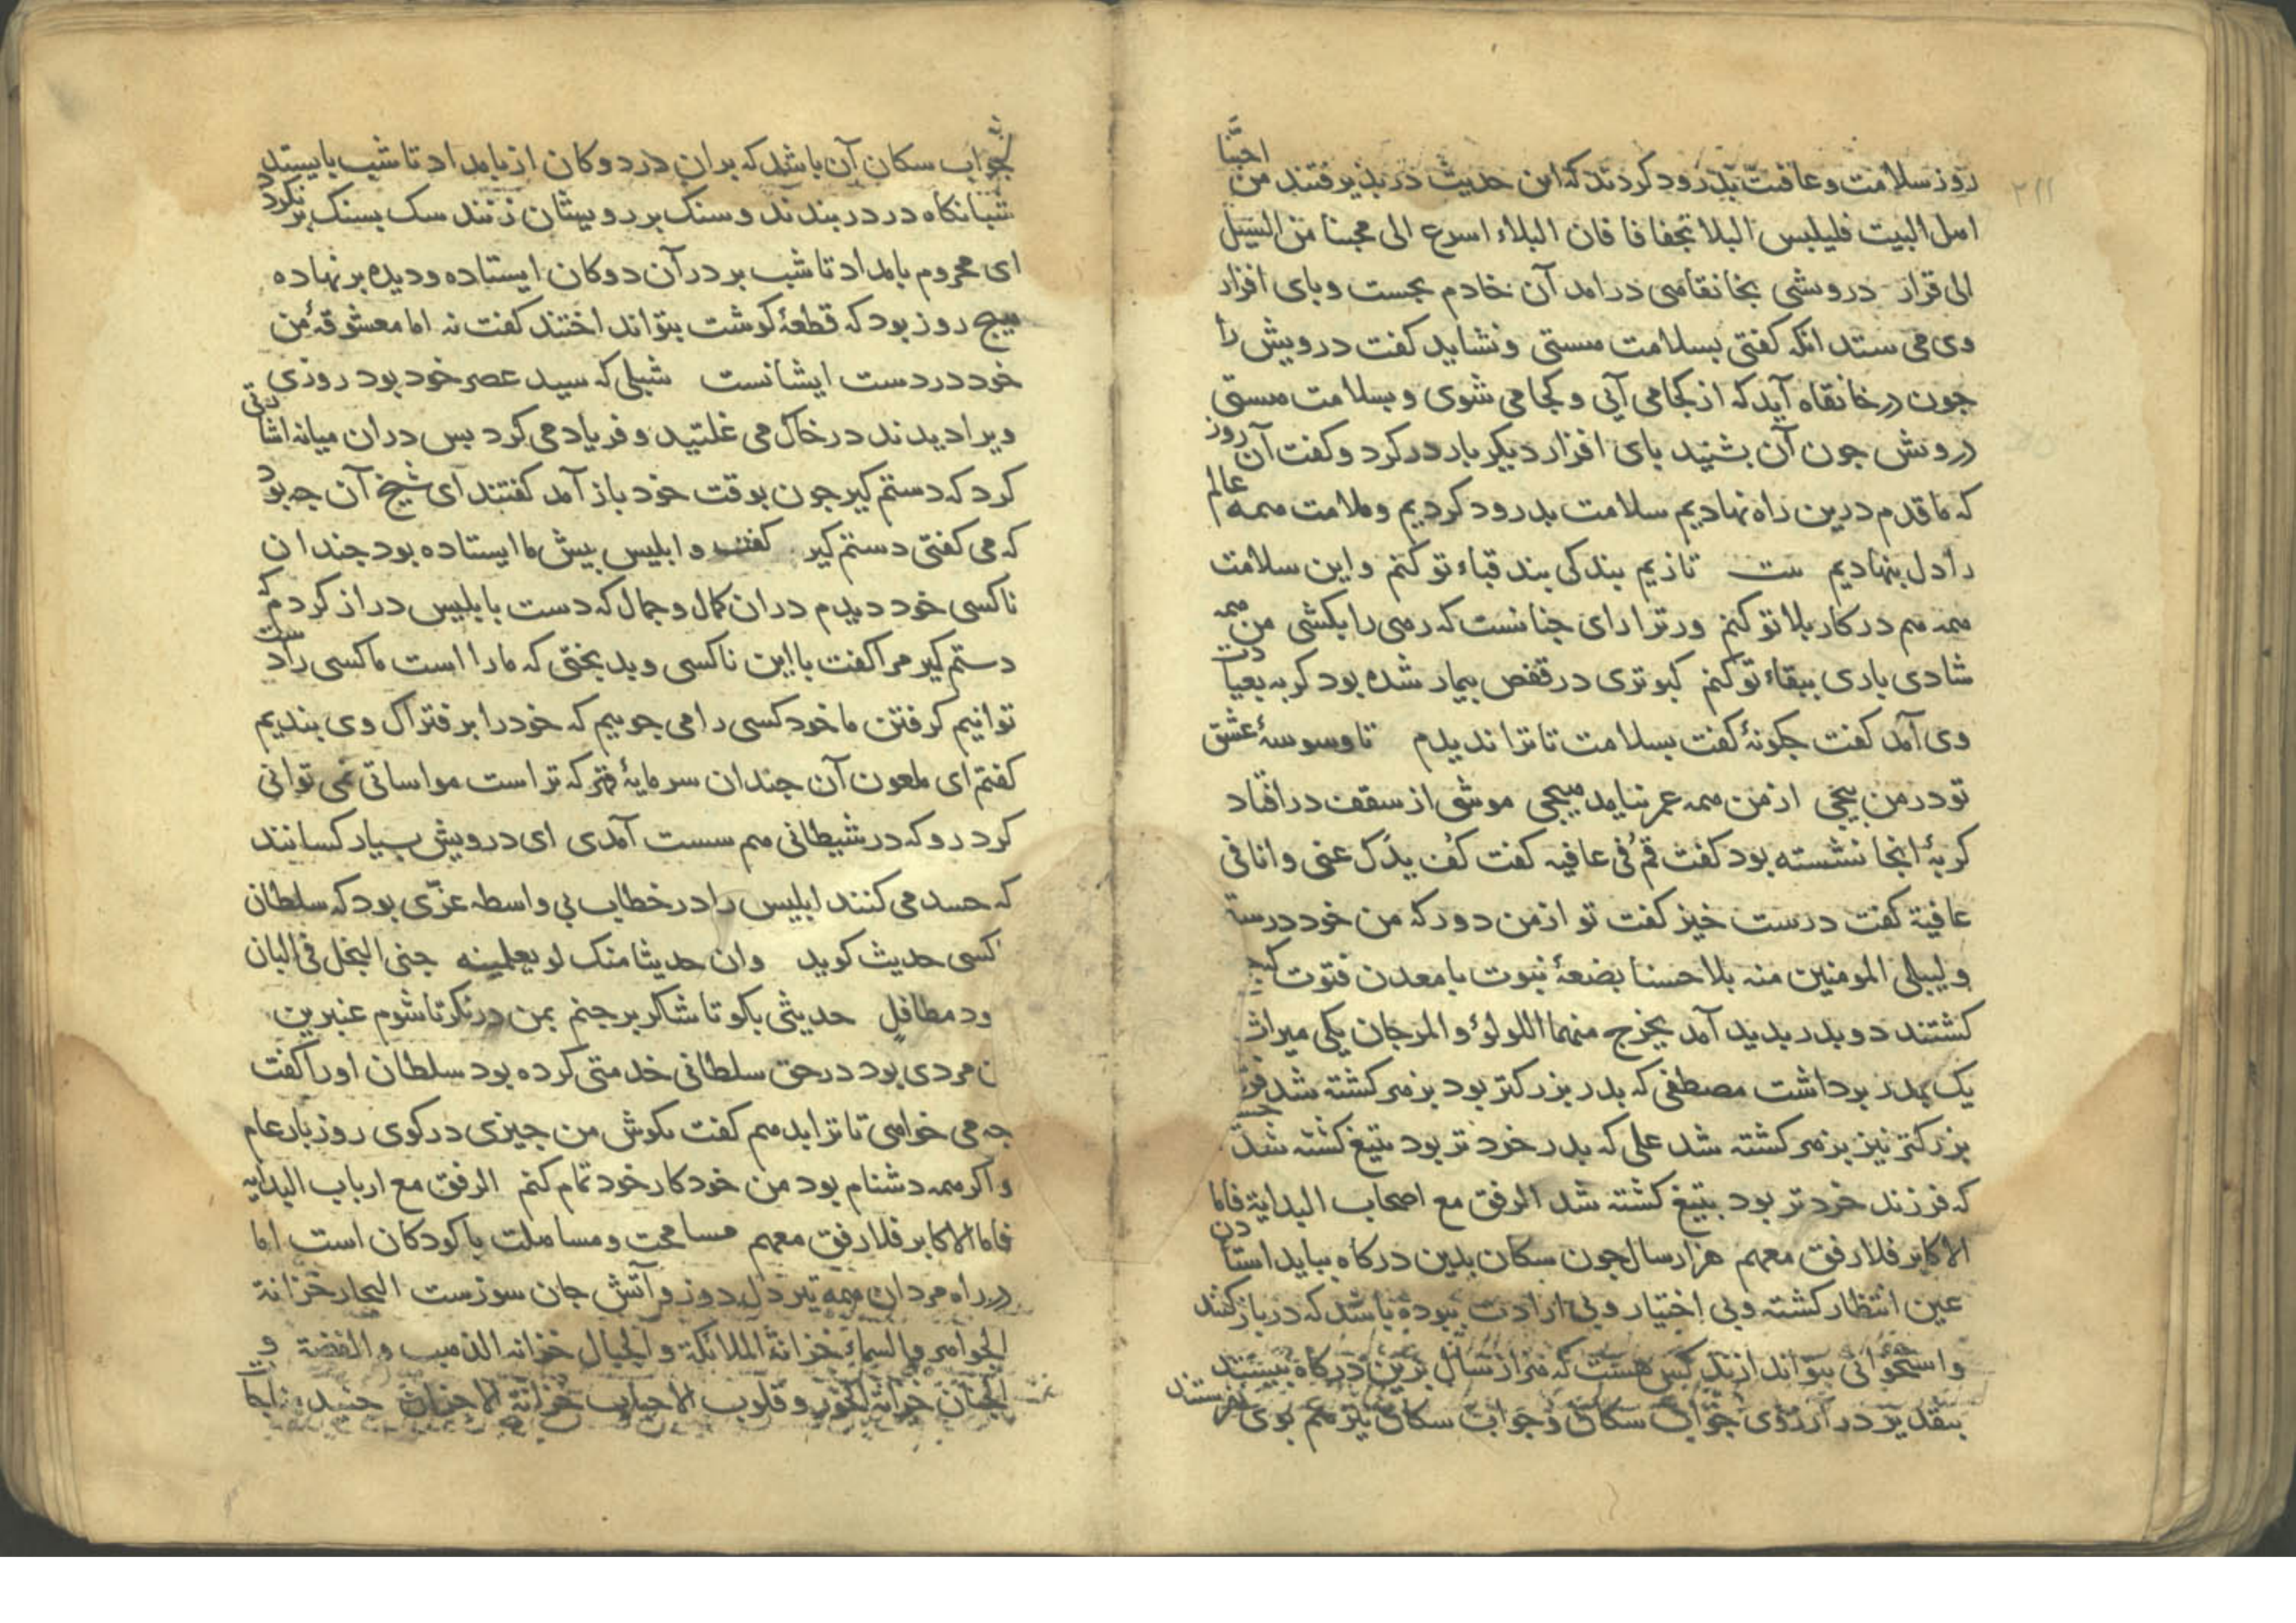 ۲۱۱
روز سلامت و عافیت بدرود کردند که این حدیث در بذیرفتند من احبّنا
اهل البیت فلیلبس البلا تجفافا فان البلاء اسرع الی محبنا من السیل
الی قرار درویشی بخانقاهی درامد آن خادم بجست و بای افزار
وی می ستد انکه کفتی بسلامت هستی و نشاید کفت درویش را
جون در خانقاه آید که از کجا می آیی و کجا می شوی و بسلامت هستی
درویش جون آن بشنید بای افزار دیکر بار در کرد و کفت آن روز
که ما قدم درین راه نهادیم سلامت بدرود کردیم و ملامت همه عالم
را دل بنهادیم بیت تا زیم بندکی بند قباء تو کنم و این سلامت
همه هم در کار بلا تو کنم ور ترا رای جنانست که رهی را بکشی من همه
شادی باری ببقاء تو کنم کبوتری در قفص بیمار شده بود کربه بعیادت
وی آمد کفت جکونۀ کفت بسلامت تا ترا ندیدم تا وسوسۀ عشق
تو در من بیجی از من همه عمر نیاید هیجی موشی از سقف در افتاد
کربۀ انجا نشسته بود کفت قُم فی عافیه کفت کُف یدَک عنی وانا فی
عافیة کفت درست خیز کفت تو از من دور که من خود درستم
ولیبلی المومنین منه بلا حسنا بضعۀ نبوت با معدن فتوت
کشتند دو بدر بدید آمد یخرج منهما اللولوء والمرجان یکی میراث
یک بدر برداشت مصطفی که بدر بزرکتر بود بزهر کشته شد
بزرکتر نیز بزهر کشته شد علی که بدر خردتر بود بتیغ کشته شد
که فرزند خردتر بود بتیغ کشته شد الرفق مع اصحاب البدایة فاما
الاکابر فلا رفق معهم هزار سال جون سکان بدین درکاه بباید استادن
عین انتظار کشته و بی اختیار و بی ارادت ببوده باشد که در باز کنند
و استخوانی بتو اندازند کس هست که هزار سال برین درکاه بیستد
بتقدیر در آرزوی جواب سکان و جواب سکان نیز هم بوی نفرستند
جواب سکان آن باشد که بران در دوکان از بامداد تا شب بایستد
شبانکاه در دربندند و سنک بر رویشان زنند سک بسنک برنکردد
ای محروم بامداد تا شب بر در آن دوکان ایستاده و دیده بر نهاده
هیج روز بود که قطعۀ کوشت بتو انداختند کفت نه اما معشوقۀ من
خود در دست ایشانست شبلی که سید عصر خود بود روزی
ویرا دیدند در خاک می غلتید و فریاد می کرد بس دران میانه اشارتی
کرد که دستم کیر جون بوقت خود باز آمد کفتند ای شیخ آن جه بود
که می کفتی دستم کیر کفت و ابلیس بیش ما ایستاده بود جندان
ناکسی خود دیدم دران کمال و جمال که دست بابلیس دراز کردم که
دستم کیر مرا کفت با این ناکسی و بدبختی که مارا است ما کسی را دست
توانیم کرفتن ما خود کسی را می جوییم که خود را بر فتراک وی بندیم
کفتم ای ملعون آن جندان سرمایۀ قهر که تراست مواساتی نمی توانی
کرد رو که در شیطانی هم سست آمدی ای درویش بسیار کسانند
که حسد می کنند ابلیس را در خطاب بی واسطه عزّی بود که سلطان
کسی حدیث کوید وان حدیثا منک لو یعلمینه جنی النخل فی البان
ود مطافل حدیثی بکو تا شاکر برجنم بمن درنکر تا شوم عنبرین
ن مردی بود در حق سلطانی خدمتی کرده بود سلطان اورا کفت
جه می خواهی تا ترا بدهم کفت بکوش من جیزی در کوی روز بار عام
و اکر همه دشنام بود من خود کار خود تمام کنم الرفق مع ارباب البدایه
فاما الاکابر فلا رفق معهم مسامحت و مساهلت با کودکان است اما
در راه مردان همه تیر دل دوز و آتش جان سوزست البحار خزانة
الجواهر والسماء خزانة الملائکة والجبال خزانه الذهب والفضة و
الجنان خزانة الحور وقلوب الاحباب خزانة الاحزان جنید